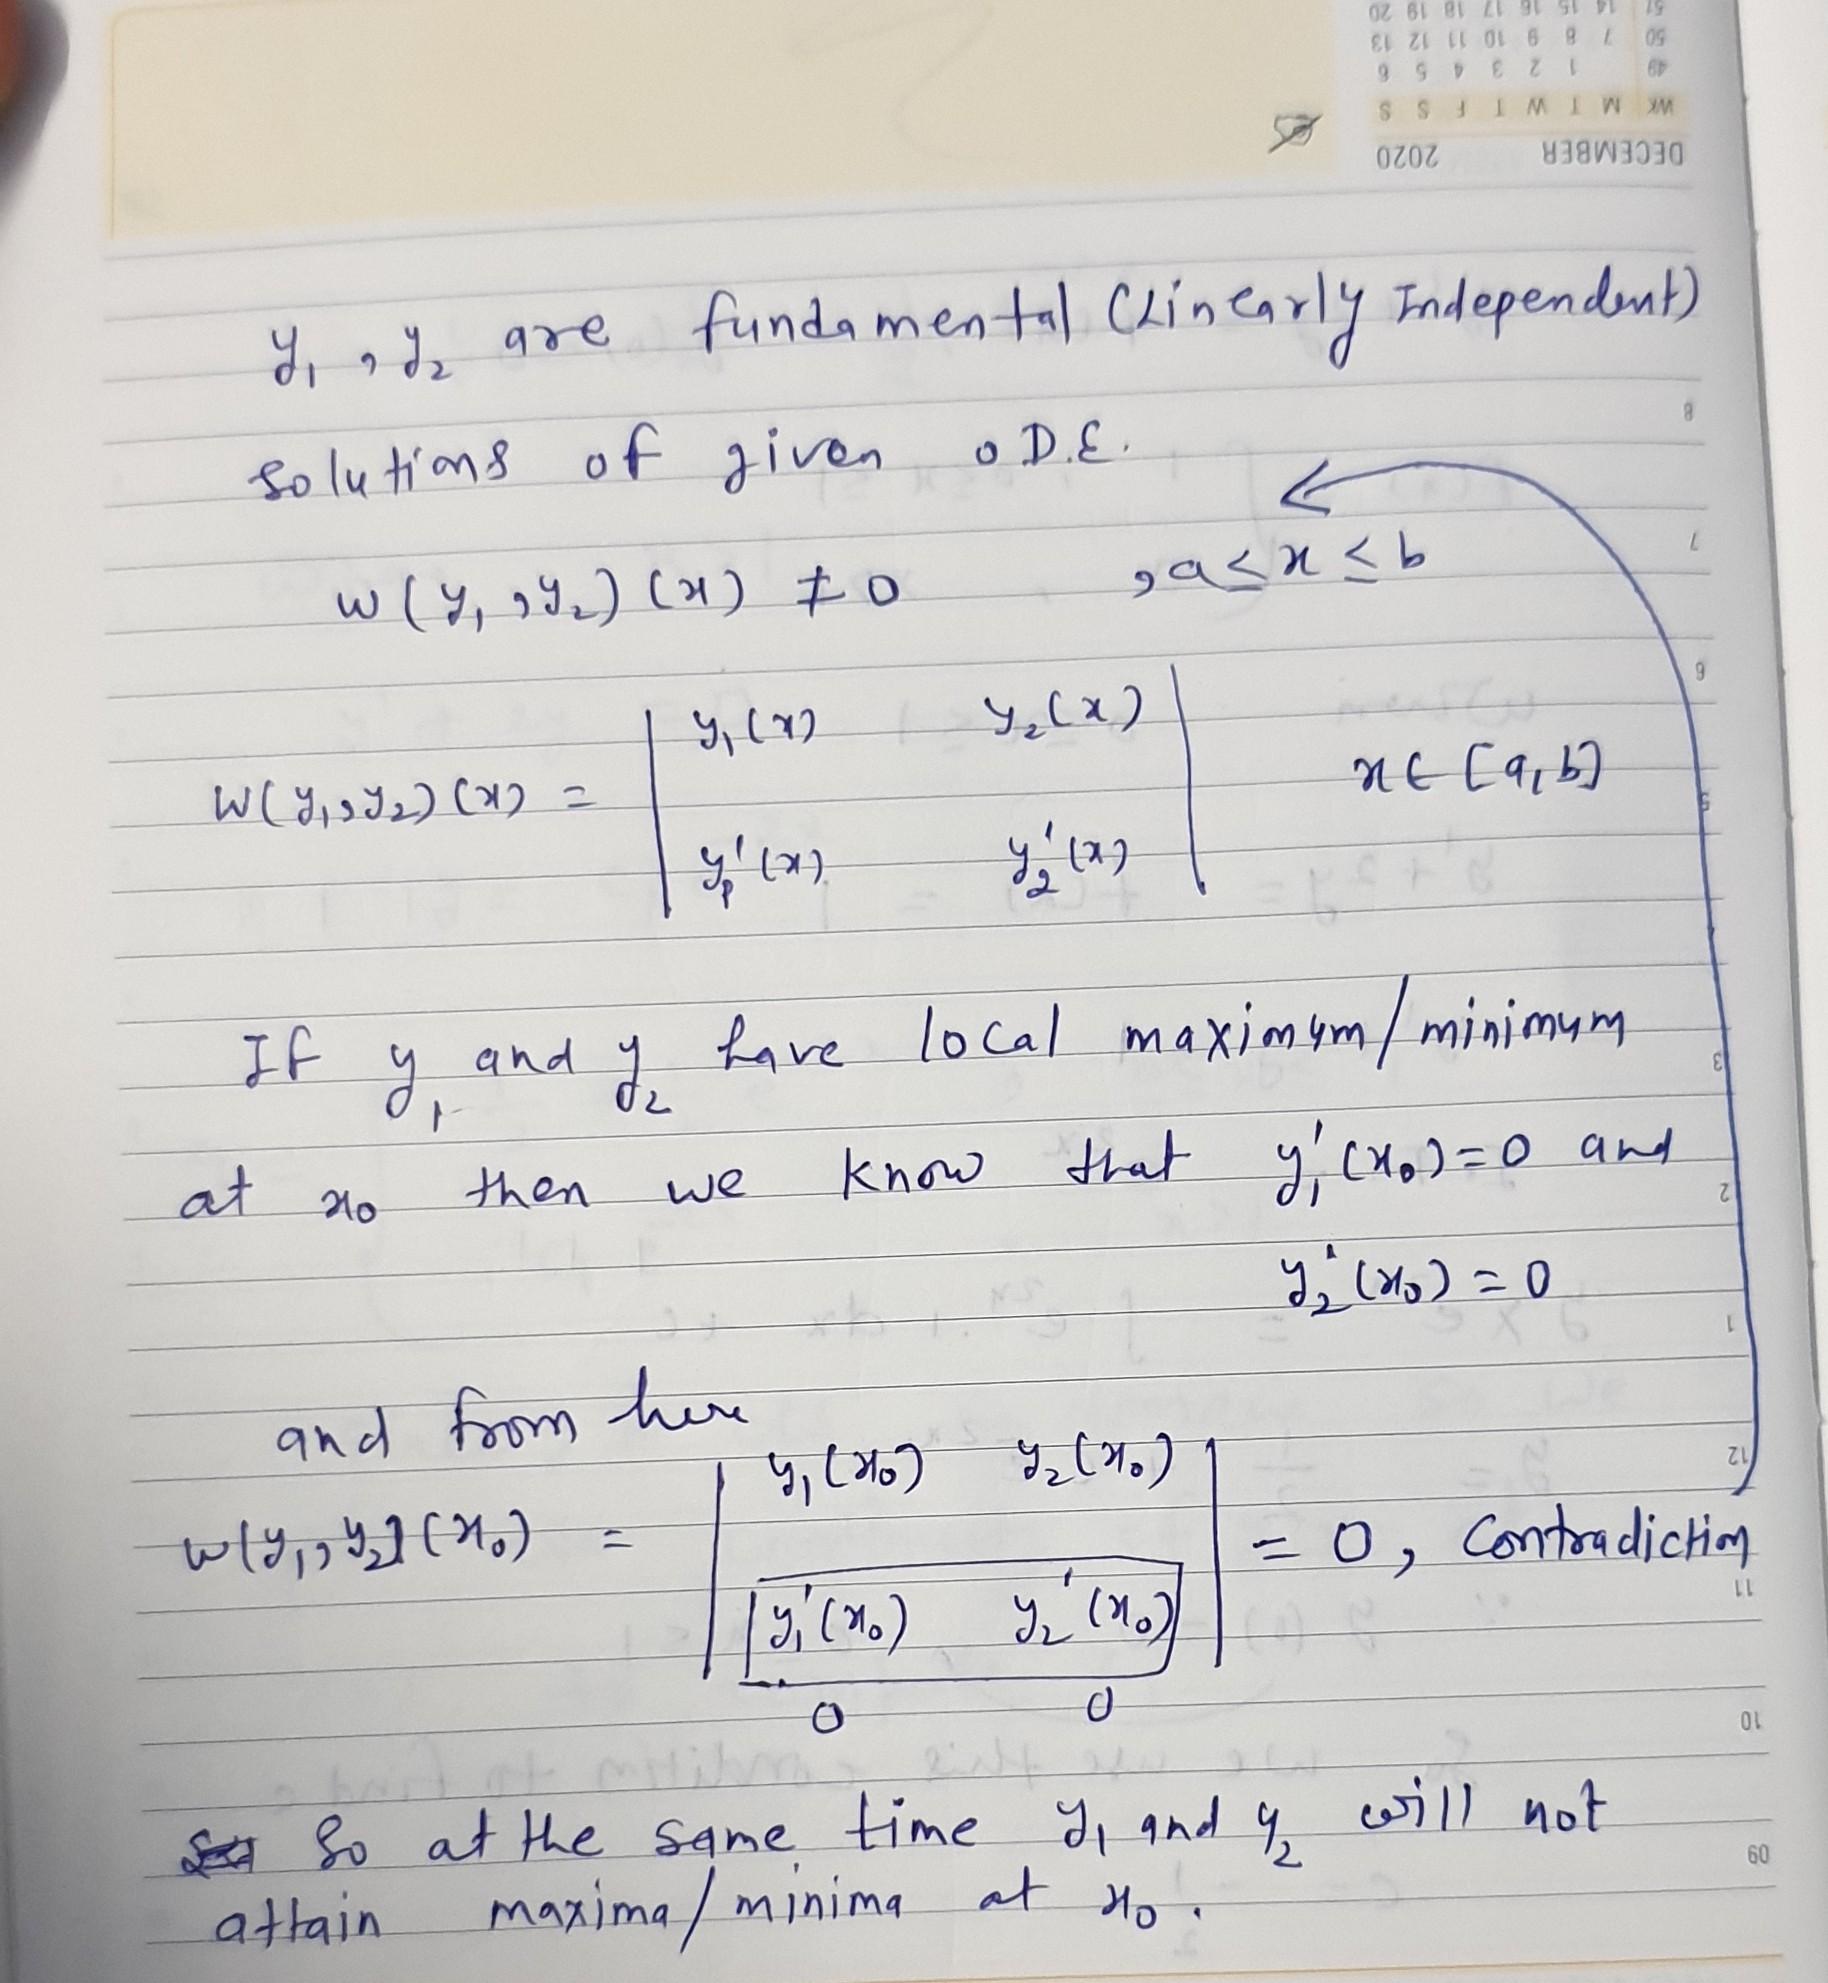 DECEMBER 2020
WK M T W T F S S
49 1 2 3 4 5 6
50 7 8 9 10 11 12 13
51 14 15 16 17 18 19 20
y₁, y₂ are fundamental (Linearly Independent)
solutions of given O.D.E.
W(y₁, y₂)(x) ≠ 0 , a ≤ x ≤ b
W(y₁, y₂)(x) = | y₁(x) y₂(x) |
| y₁'(x) y₂'(x) | x ∈ [a, b]
If y₁ and y₂ have local maximum/minimum
at x₀ then we know that y₁'(x₀) = 0 and
y₂'(x₀) = 0
and from here
W(y₁, y₂)(x₀) = | y₁(x₀) y₂(x₀) |
| y₁'(x₀) y₂'(x₀) | = 0, Contradiction
0 0
So at the same time y₁ and y₂ will not
attain maxima/minima at x₀.
8
7
6
5
3
2
1
12
11
10
09